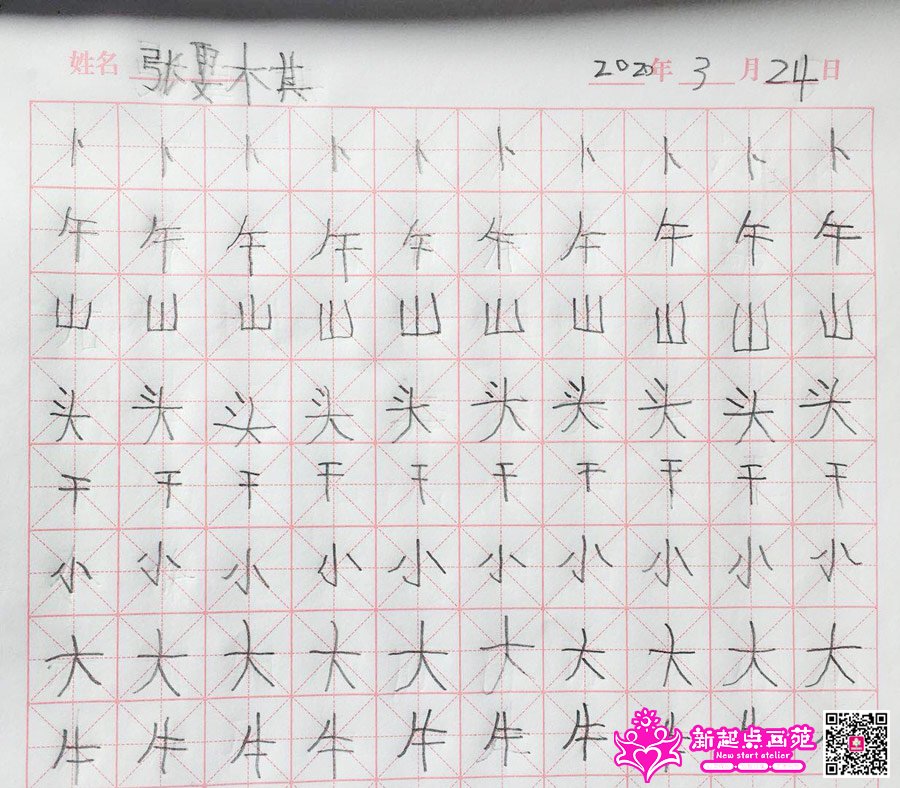 姓名 张 木其 2020年 3月 24日
卜 卜 卜 卜 卜 卜 卜 卜 卜 卜
午 午 午 午 午 午 午 午 午 午
山 山 山 山 山 山 山 山 山 山
头 头 头 头 头 头 头 头 头 头
干 干 干 干 干 干 干 干 干 干
小 小 小 小 小 小 小 小 小 小
大 大 大 大 大 大 大 大 大 大
牛 牛 牛 牛 牛 牛 牛
新起点画苑
New start atelier